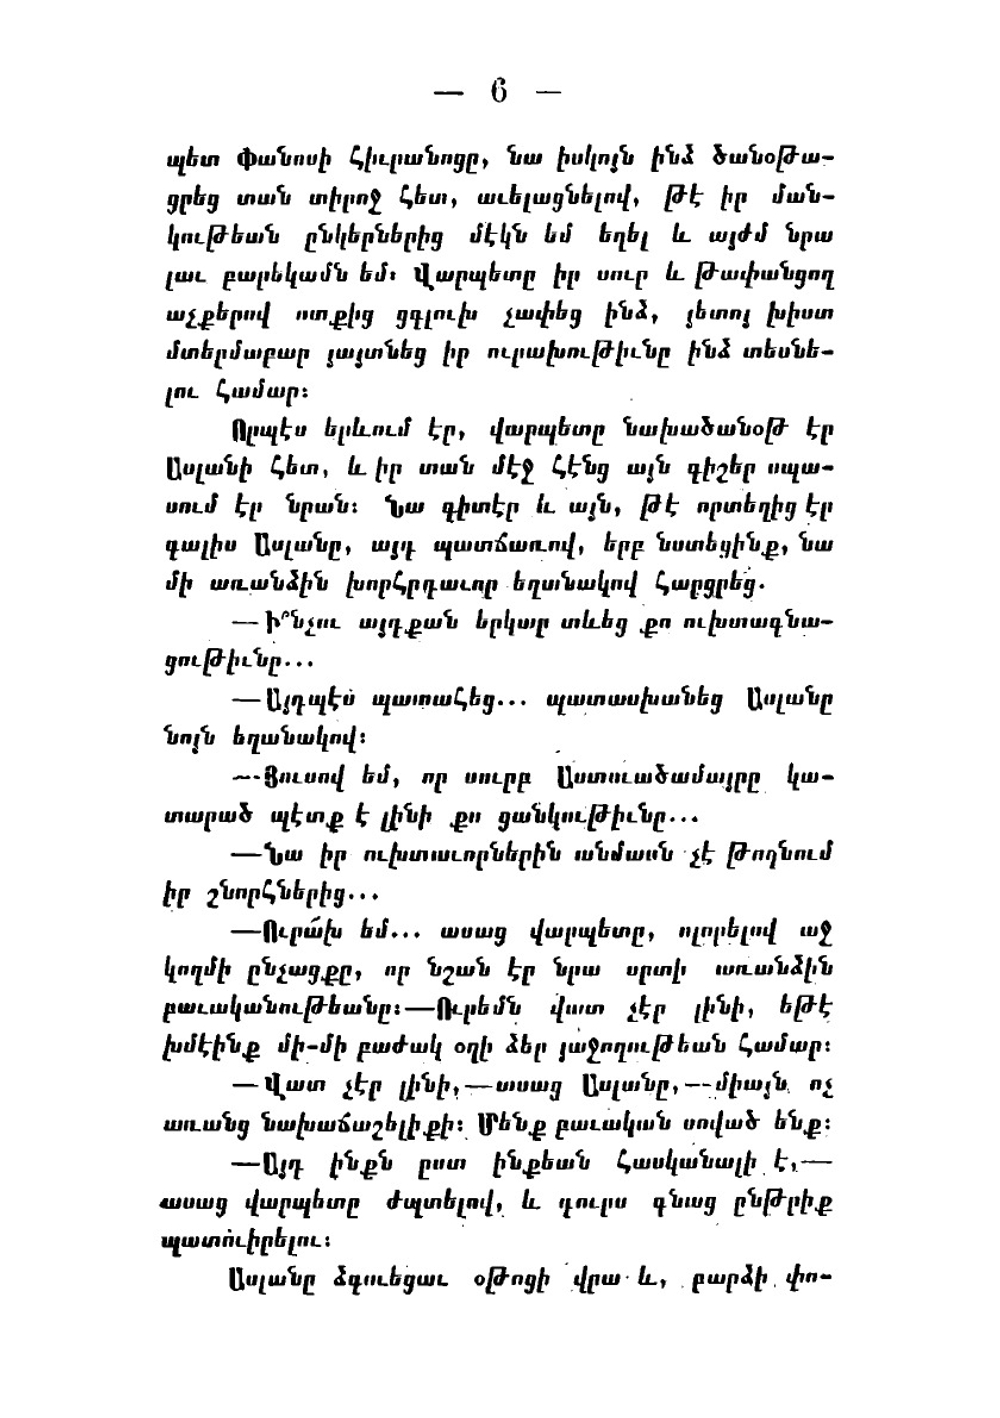 — 6 —
պետ Փանոսի հիւրանոցը, նա իսկոյն ինձ ծանօթա-
ցրեց տան տիրոջ հետ, աւելացնելով, թէ իր ման-
կութեան ընկերներից մէկն եմ եղել և այժմ նրա
լաւ բարեկամն եմ։ Վարպետը իր սուր և թափանցող
աչքերով ոտքից ցգլուխ չափեց ինձ, յետոյ խիստ
մտերմաբար յայտնեց իր ուրախութիւնը ինձ տեսնե-
լու համար։
Որպէս երևում էր, վարպետը նախածանօթ էր
Ասլանի հետ, և իր տան մէջ հէնց այն գիշեր սպա-
սում էր նրան։ Նա գիտէր և այն, թէ որտեղից էր
գալիս Ասլանը, այդ պատճառով, երբ նստեցինք, նա
մի առանձին խորհրդաւոր եղանակով հարցրեց.
— Ի՞նչու այդքան երկար տևեց քո ուխտագնա-
ցութիւնը...
— Այդպէս պատահեց... պատասխանեց Ասլանը
նոյն եղանակով։
— Յուսով եմ, որ սուրբ Աստուածամայրը կա-
տարած պէտք է լինի քո ցանկութիւնը...
— Նա իր ուխտաւորներին անմասն չէ թողնում
իր շնորհներից...
— Ուրա՛խ եմ... ասաց վարպետը, ոլորելով աջ
կողմի ընչացքը, որ նշան էր նրա սրտի առանձին
բաւականութեանը։— Ուրեմն վատ չէր լինի, եթէ
խմէինք մի-մի բաժակ օղի ձեր յաջողութեան համար։
— Վատ չէր լինի,— ասաց Ասլանը,— միայն ոչ
առանց նախաճաշելիքի։ Մենք բաւական սոված ենք։
— Այդ ինքն ըստ ինքեան հասկանալի է,—
ասաց վարպետը ժպտելով, և դուրս գնաց ընթրիք
պատուիրելու։
Ասլանը ձգուեցաւ օթոցի վրա և, բարձի փո-